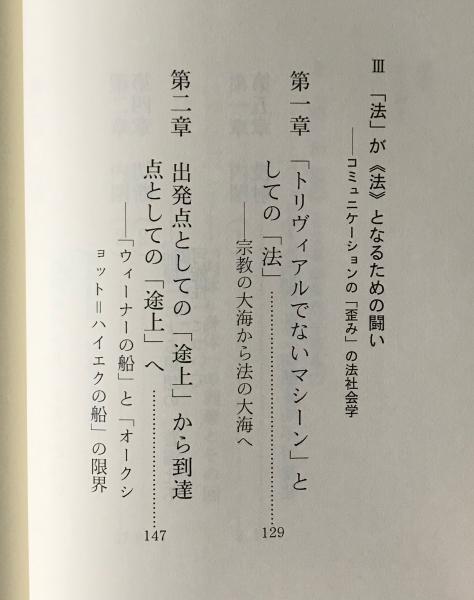 Ⅲ 「法」が《法》となるための闘い
──コミュニケーションの「歪み」の法社会学
第一章 「トリヴィアルでないマシーン」と
しての「法」……………………………129
──宗教の大海から法の大海へ
第二章 出発点としての「途上」から到達
点としての「途上」へ……………………147
──「ウィーナーの船」と「オークシ
ョット＝ハイエクの船」の限界